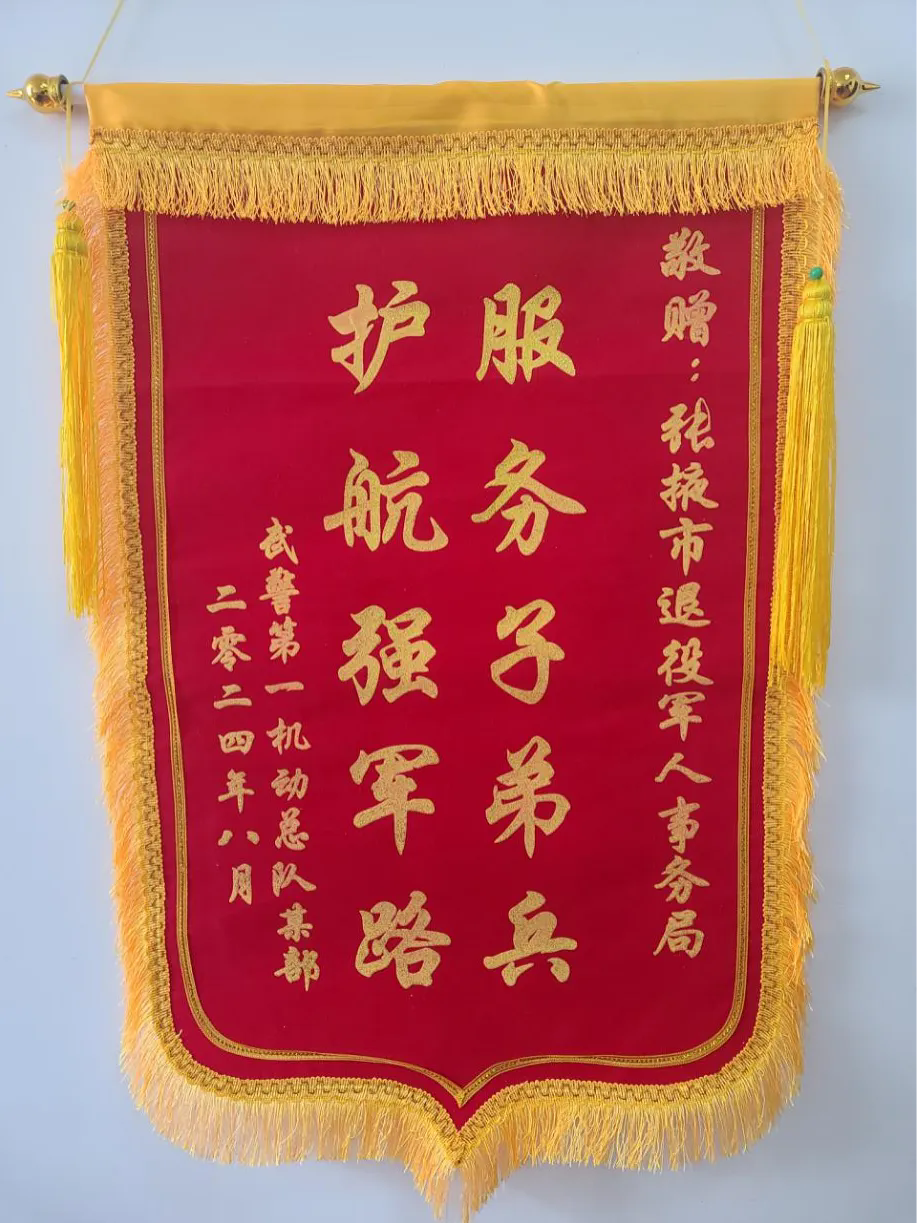 敬赠：张掖市退役军人事务局
服务子弟兵
护航强军路
武警第一机动总队某部
二零二四年八月